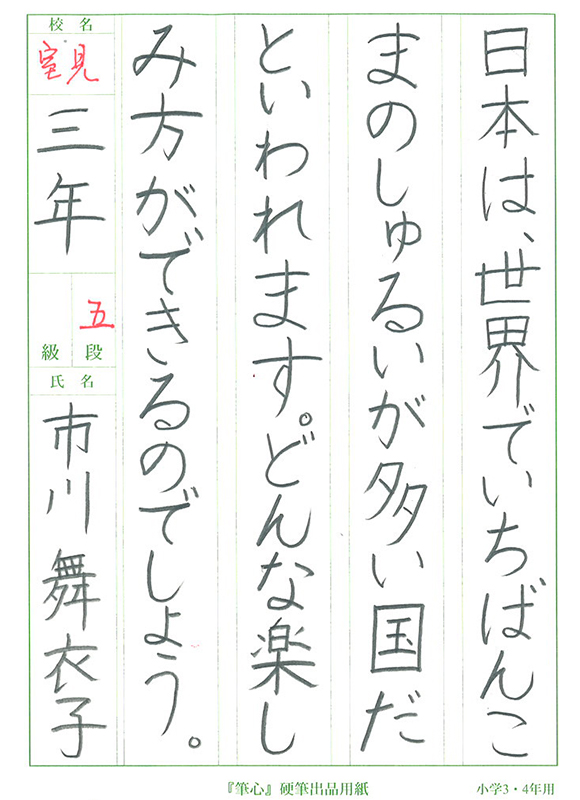 日本は、世界でいちばんこ
まのしゅるいが多い国だ
といわれます。どんな楽し
み方ができるのでしょう。
校名
室見
三年
五
級 段
氏名
市川舞衣子
『筆心』硬筆出品用紙
小学3・4年用